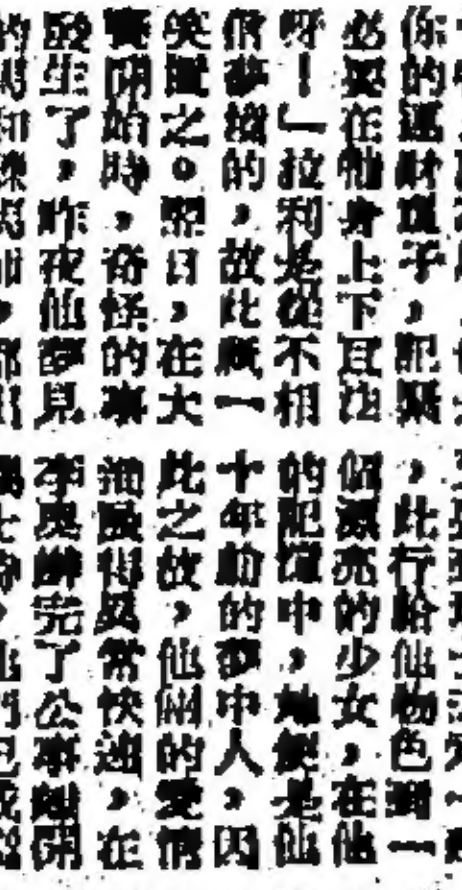 你的運財童子，記緊
必要在牠身上下注
呀！」拉利是從不相
信夢境的，故此祇一
笑置之。翌日，在大
賽開始時，奇怪的事
發生了，昨夜他夢見
，此行給他物色到一
個漂亮的少女，在他
的記憶中，她便是他
十年前的夢中人，因
此之故，他倆的愛情
得異常快速，在
李奧辦完了公事離開